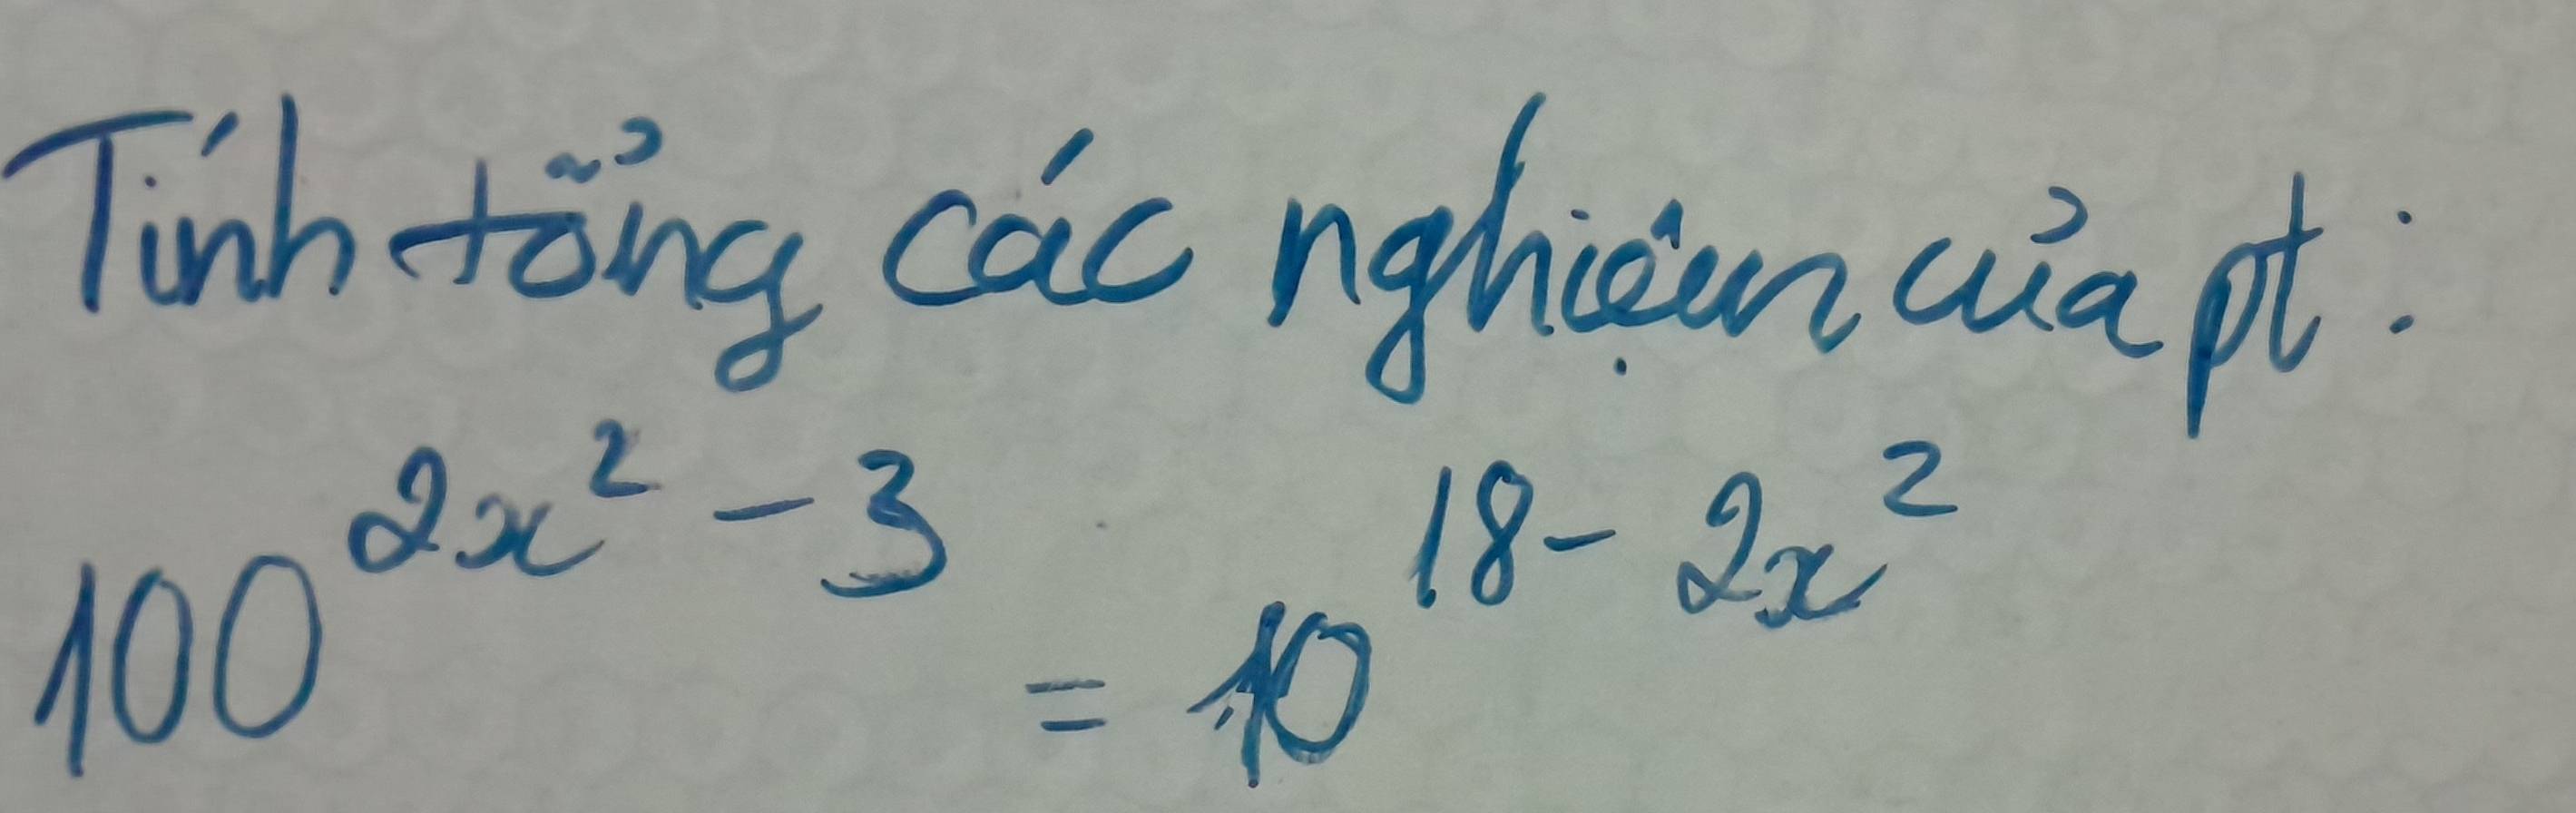 Tính tổng các nghiệm của pt :
100^{2x^2 - 3} = 10^{18 - 2x^2}